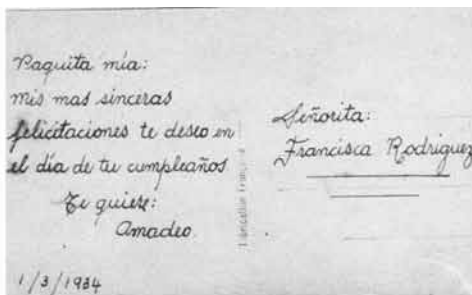 Paquita mía:
mis mas sinceras
felicitaciones te deseo en
el día de tu cumpleaños
Te quiere:
Amadeo
1/3/1934
Señorita:
Francisca Rodriguez